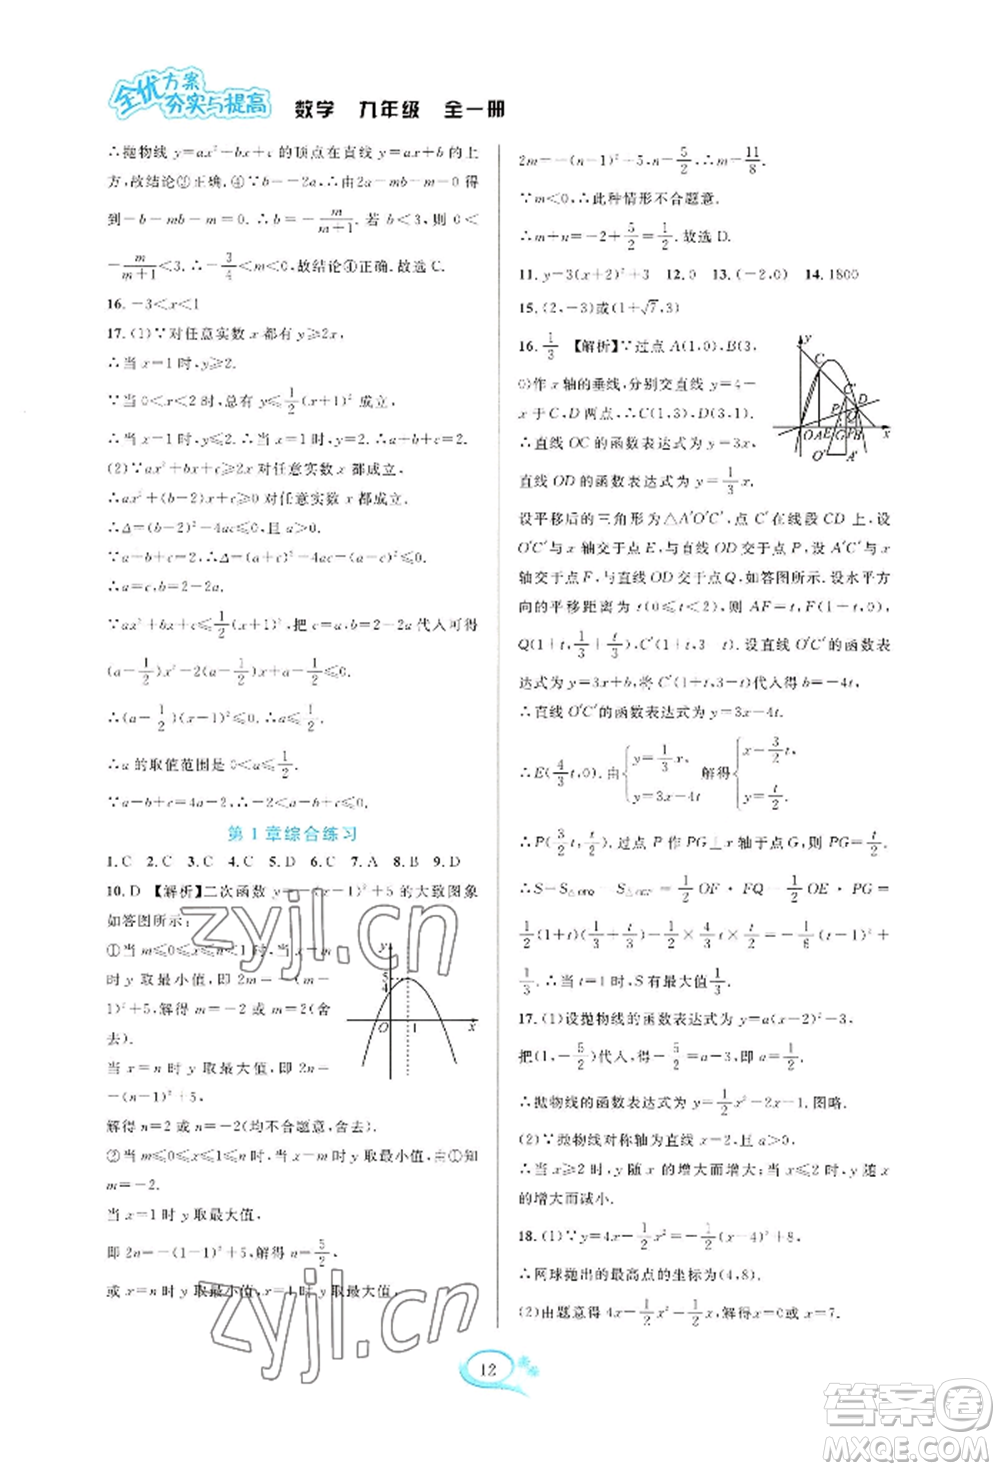 全优方案
夯实与提高
数学 九年级 全一册
∴抛物线 y=ax²+bx+c 的顶点在直线 y=m 的上
方,故结论③正确.④∵b=-2a,∴由 2a-mb-m=0 得
到-b-mb-m=0.∴b=-m/(m+1).若 b<3,则 0<
-m/(m+1)<3.∴-3/4<m<0,故结论④正确.故选 C.
16.-3<x<1
17.(1)∵对任意实数 x 都有 y≥2x,
∴当 x=1 时,y≥2.
∵当 0<x<2 时,总有 y≤1/2(x+1)² 成立,
∴当 x=1 时,y≤2.∴当 x=1 时,y=2.
(2)∵ax²+bx+c≥2x 对任意实数 x 都成立,
∴ax²+(b-2)x+c≥0 对任意实数 x 都成立.
∴Δ=(b-2)²-4ac≤0且a>0.
∵a-b+c=0,∴Δ=(a+c)²-4ac=(a-c)²≤0.
∴a=c.∴b=2-2a.
∵ax²+bx+c≤1/2(x+1)²,把 c=a,b=2-2a代入可得
(a-1/2)x²-2(a-1/2)x+a-1/2≤0.
∴(a-1/2)(x-1)²≤0.∴a≤1/2.
∴a 的取值范围是 0<a≤1/2.
∵a-b+c=4a-2,∴-2<a-b+c≤0.
第 1 章综合练习
1.C 2.C 3.C 4.C 5.D 6.C 7.A 8.B 9.D
10.D 【解析】二次函数 y=-(x-1)²+5 的大致图象
如答图所示:
①当 m≤0≤x≤n<1 时,当 x=m
时 y 取最小值,即 2m=-(m-
1)²+5,解得 m=-2 或 m=2(舍
去).
当 x=n 时 y 取最大值,即 2n=
-(n-1)²+5,
解得 n=2 或 n=-2(均不合题意,舍去).
②当 m≤0≤x≤1≤n 时,当 x=m 时 y 取最小值,由①知
m=-2.
当 x=1 时 y 取最大值,
即 2n=-(1-1)²+5,解得 n=5/2,
或 x=n 时 y 取最小值,x=1 时 y 取最大值,
y
5
4
O
1
x
2m=-(n-1)²+5,n=5/2,∴m=11/8.
∵m<0,∴此种情形不合题意.
∴m+n=-2+5/2=1/2.故选 D.
11.y=3(x+2)²+3 12.0 13.(-2,0) 14.1800
15.(2,-3)或(1+√7,3)
16.1/3 【解析】∵过点 A(1,0),B(3,
0)作 x 轴的垂线,分别交直线 y=4-
x 于 C,D 两点,∴C(1,3),D(3,1).
∴直线 OC 的函数表达式为 y=3x,
直线 OD 的函数表达式为 y=1/3x.
y
C
C′
D
P
Q
O A E G F B x
O′ A′
设平移后的三角形为△A′O′C′,点 C′在线段 CD 上,设
O′C′与 x 轴交于点 E,与直线 OD 交于点 P,设 A′C′与 x
轴交于点 F,与直线 OD 交于点 Q,如答图所示.设水平方
向的平移距离为 t(0≤t<2),则 AF=t,F(1+t,0),
Q(1+t,1/3+1/3t),C′(1+t,3-t).设直线 O′C′的函数表
达式为 y=3x+b,将 C′(1+t,3-t)代入得 b=-4t,
∴直线 O′C′的函数表达式为 y=3x-4t.
∴E(4/3t,0).由{y=1/3x, y=3x-4t 解得{x=3/2t, y=1/2t,
∴P(3/2t,1/2t).过点 P 作 PG⊥x 轴于点 G,则 PG=1/2t.
∴S=S△OFQ-S△OEP=1/2OF·FQ-1/2OE·PG=
1/2(1+t)(1/3+1/3t)-1/2×4/3t×1/2t=-1/6(t-1)²+
1/3.∴当 t=1 时,S有最大值1/3.
17.(1)设抛物线的函数表达式为 y=a(x-2)²-3,
把(1,-5/2)代入,得-5/2=a-3,即 a=1/2.
∴抛物线的函数表达式为 y=1/2x²-2x-1.图略.
(2)∵抛物线对称轴为直线 x=2,且 a>0,
∴当 x≥2 时,y 随 x 的增大而增大;当 x≤2 时,y 随 x
的增大而减小.
18.(1)∵y=4x-1/2x²=-1/2(x-4)²+8,
∴网球抛出的最高点的坐标为(4,8).
(2)由题意得 4x-1/2x²=1/2x,解得 x=0 或 x=7.
12
zyjl.cn
zyjl.cn
答案圈
MXQE.COM